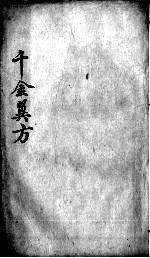 千金翼方